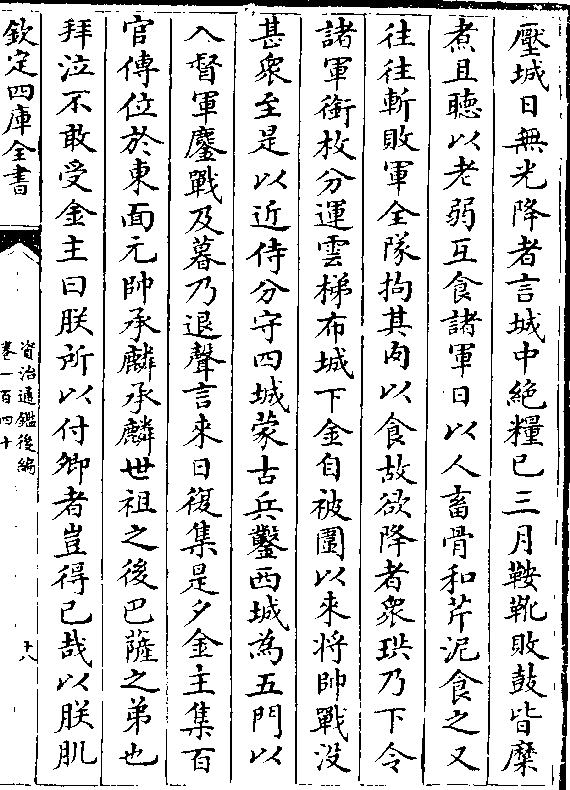 壓城日無光降者言城中絶糧已三月鞍靴敗鼓皆糜
煮且聴以老弱互食諸軍日以人畜骨和芹泥食之又
往往斬敗軍全隊拘其肉以食故欲降者衆珙乃下令
諸軍銜枚分運雲梯布城下金自被圍以來將帥戰没
甚衆至是以近侍分守四城蒙古兵鑿西城為五門以
入督軍鏖戰及暮乃退聲言來日復集是夕金主集百
官傳位於東面元帥承麟承麟世祖之後巴薩之弟也
拜泣不敢受金主曰朕所以付卿者豈得已哉以朕肌
欽定四庫全書
資治通鑑後編
卷一百四十
十八